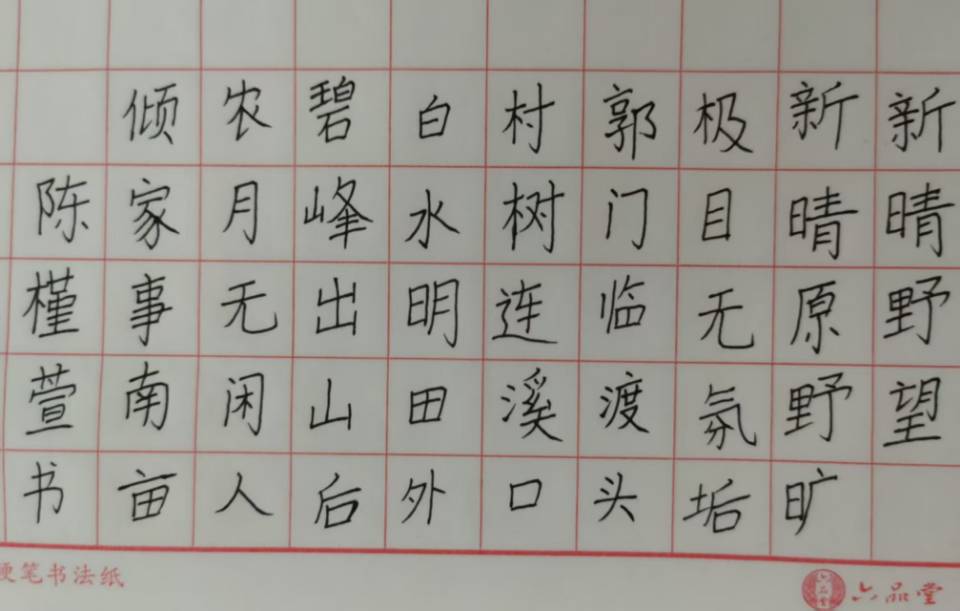 新晴野望
新晴原野旷
极目无氛垢
郭门临渡头
村树连溪口
白水明田外
碧峰出山后
农月无闲人
倾家事南亩
陈槿萱书
硬笔书法纸
六品堂
六品堂